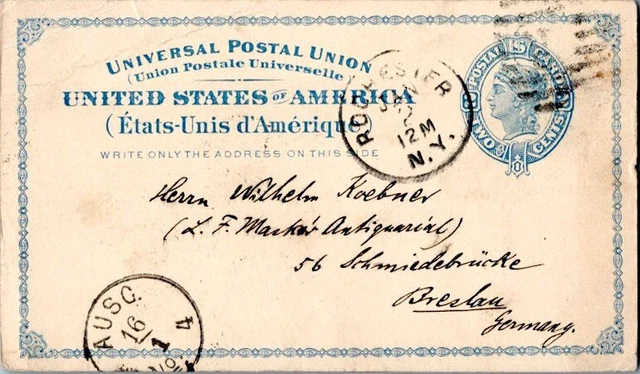 UNIVERSAL POSTAL UNION
(Union Postale Universelle)
UNITED STATES OF AMERICA
(États-Unis d'Amérique)
WRITE ONLY THE ADDRESS ON THIS SIDE
POSTAL CARD
TWO CENTS
ROCHESTER
JAN
12 M
N.Y.
Herrn Wilhelm Koebner
(L. F. Maske's Antiquariat)
56 Schmiedebrücke
Breslau
Germany.
AUSG.
16
1
4